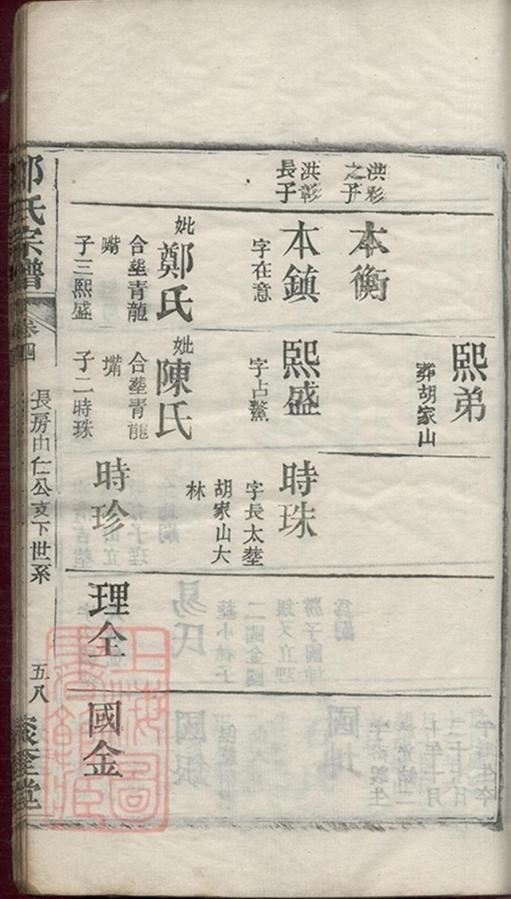 洪彩
之子
洪彰
長子
本衡
本鎮
字在意
妣鄭氏
合塟青龍
嘴
子三熙盛
熙弟
葬胡家山
熙盛
字占鰲
妣陳氏
合塟青龍
嘴
子二時珠
時珠
字長太塟
胡家山大
林
時珍
理全
國金
氏宗譜
卷四
長房由仁公支下世系
五八